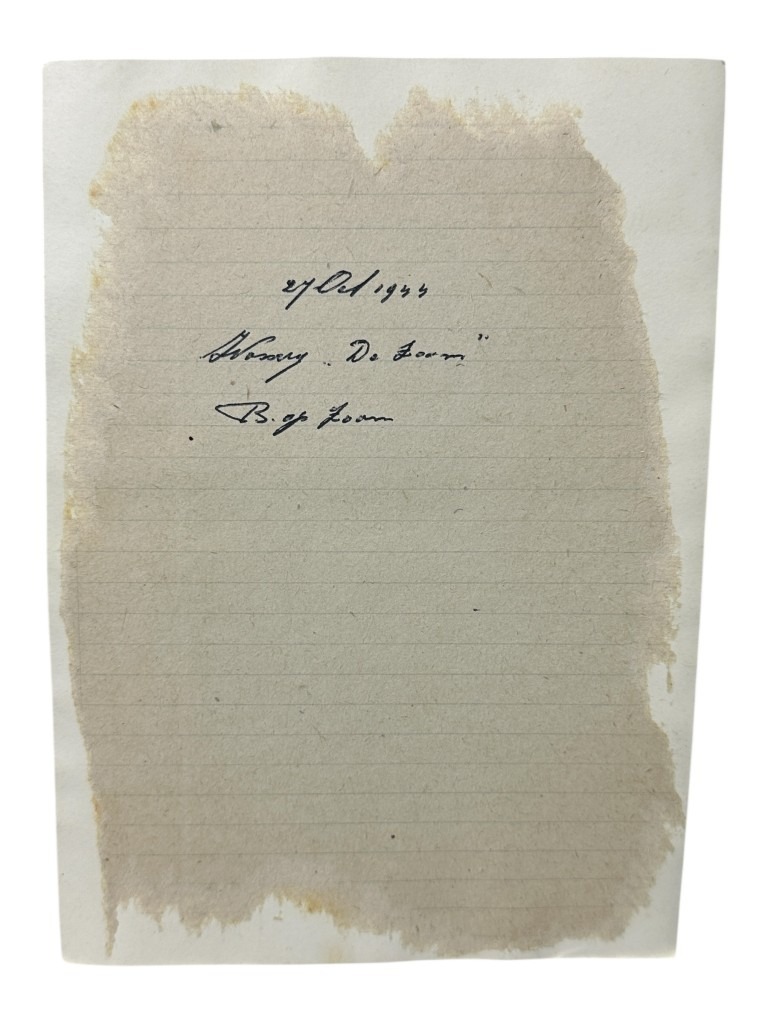 27 Oct 1944
Wassery „De Zoom"
B. op Zoom